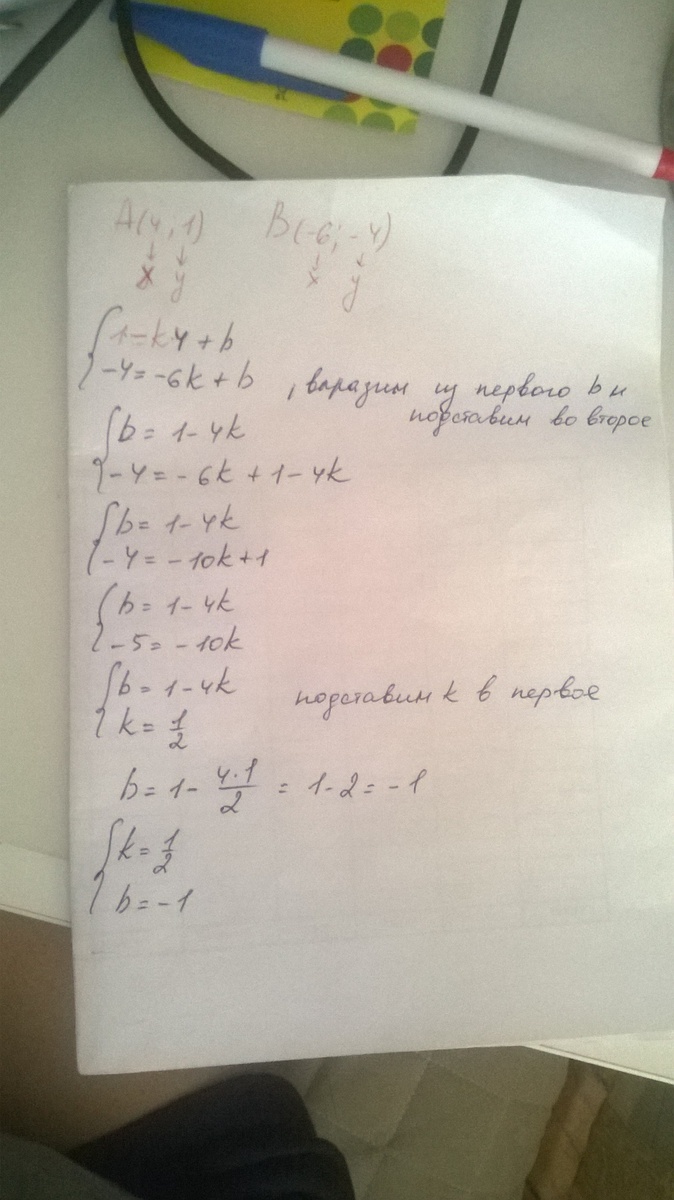 A(4,1) B(-6;-4)
↓ ↓ ↓ ↓
x y x y
{1=k4+b
-4=-6k+b , варазим из первого b и
подставим во второе
{b=1-4k
-4=-6k+1-4k
{b=1-4k
-4=-10k+1
{b=1-4k
-5=-10k
{b=1-4k подставим k в первое
k=1/2
b=1-4·1/2=1-2=-1
{k=1/2
b=-1